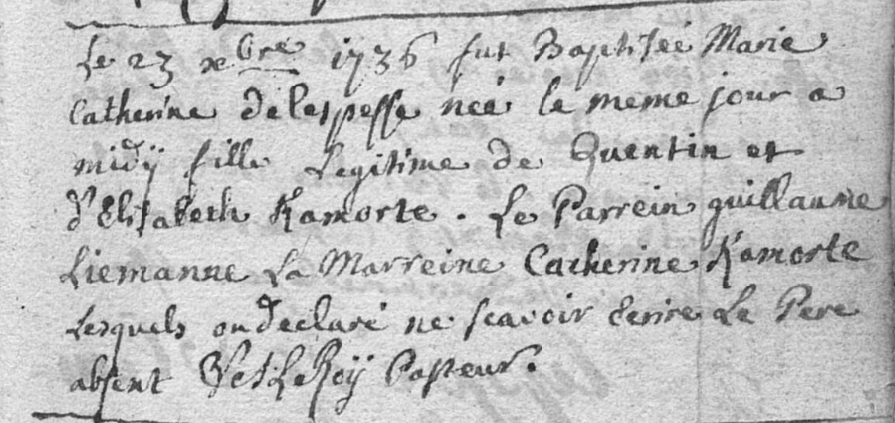 Le 23 xbre 1736 fut Baptiseé Marie
Catherine delespesse neé le meme jour a
midÿ fille Legitime de Quentin et
d'Elisabeth Kamorte. Le Parrein guillaume
Liemanne La Marreine Catherine Kamorte
Lesquels on declaré ne scavoir Ecrire Le Pere
absent LeRoÿ Pasteur.